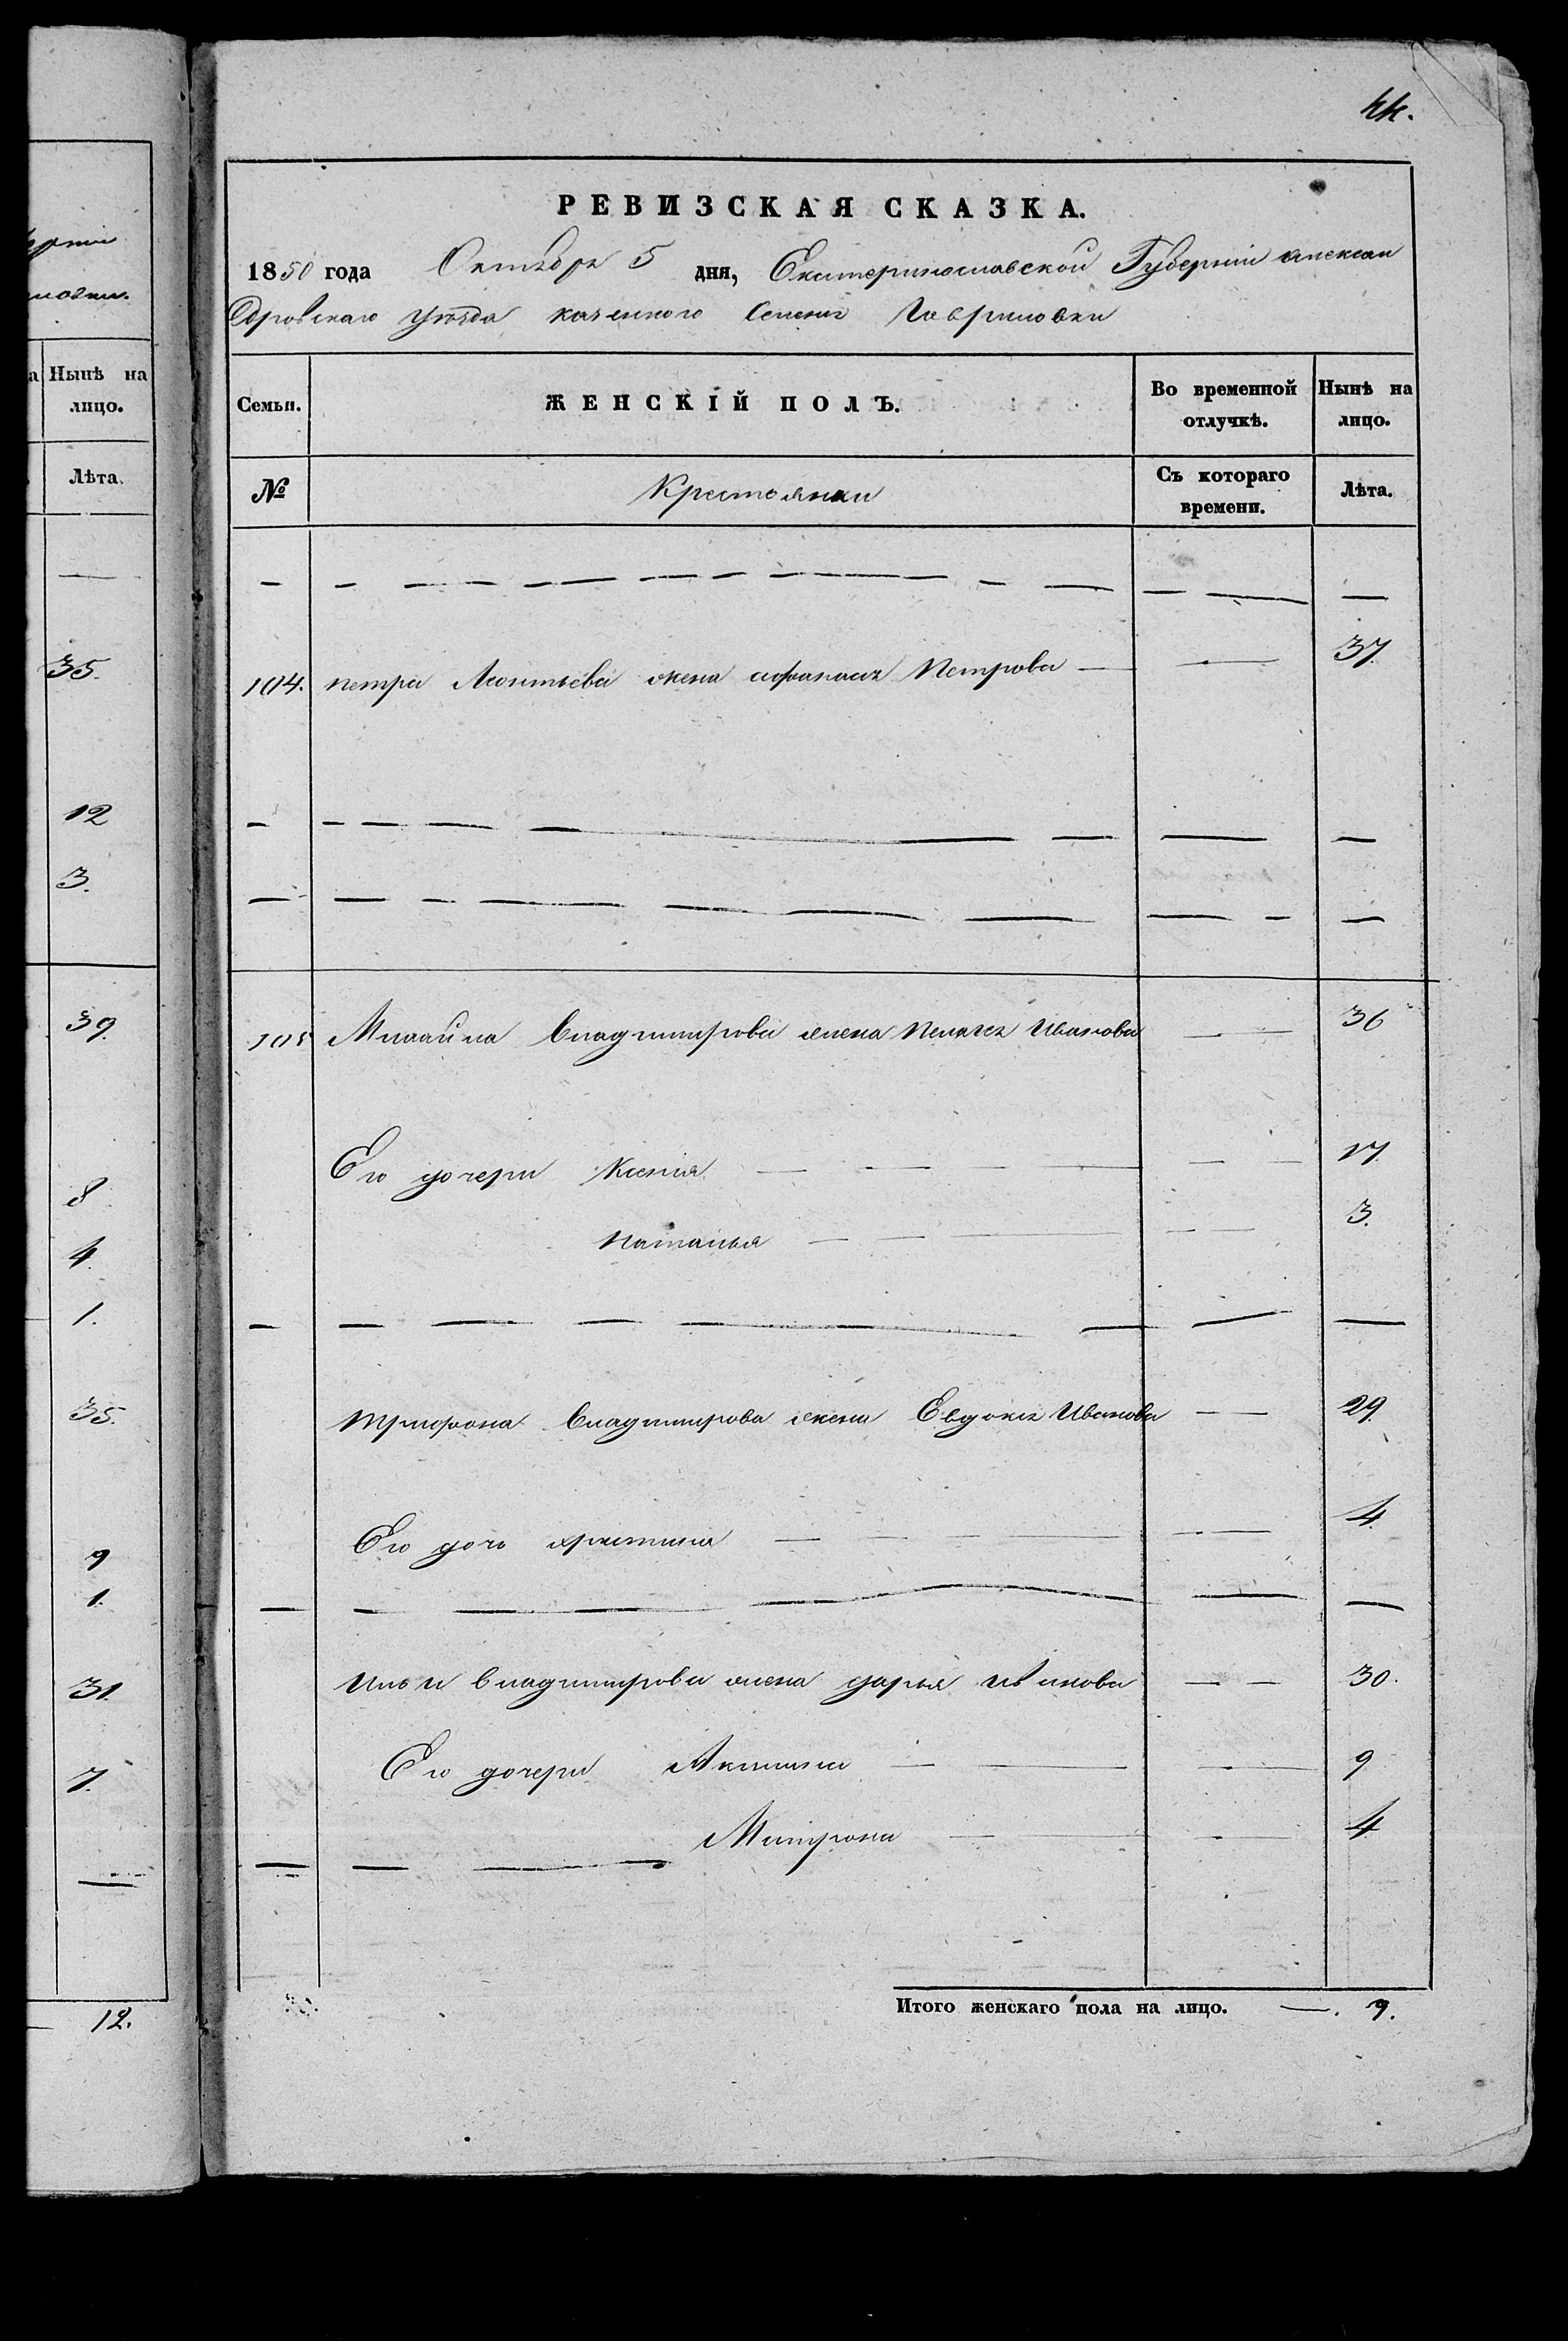 44.
РЕВИЗСКАЯ СКАЗКА.
1850 года Октября 5 дня, Екатеринославской Губерніи Алексан
дровскаго уѣзда казенного Селенія Гавриловки
Семьи. ЖЕНСКІЙ ПОЛЪ. Во временной отлучкѣ. Нынѣ на лицо.
№ Крестоянки Съ котораго времени. Лѣта.
104. петра Леонтьева жена афанасія Петрова — 37.
105 Михайла Владимирова жена Пелагея Иванова — 36
Его дочери Ксенія — 17
Наталья — 3.
Трифона Владимирова жена Евдокія Иванова — 29
Его дочь христина — 4
Ильи владимирова жена дарья Иванова — 30.
Его дочери Акилина — 9
Матрона — 4
Итого женскаго пола на лицо. — . 9.
Нынѣ на
лицо.
Лѣта.
35.
12
3.
39.
8
4.
1.
35.
9
1.
31.
7.
12.